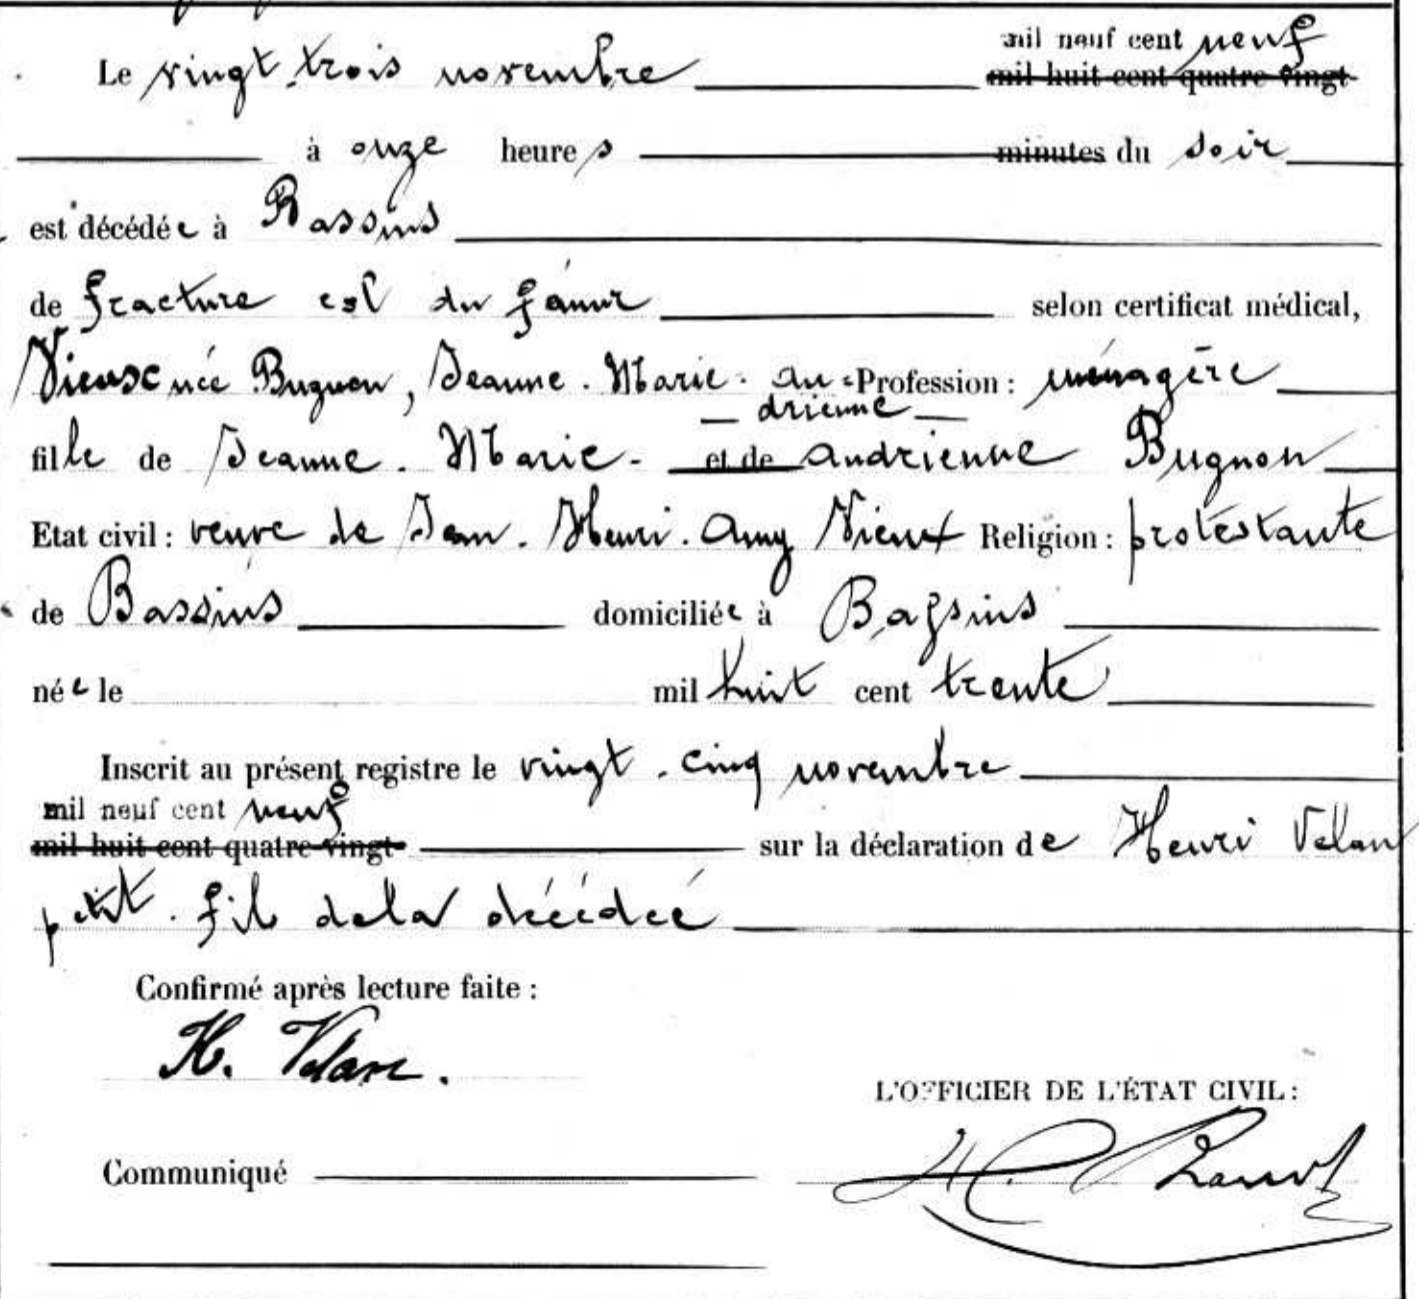 mil neuf cent neuf
Le vingt-trois novembre mil huit cent quatre-vingt
à onze heures minutes du soir
est décédée à Bassins
de fracture col du fémur selon certificat médical,
Vieux née Bugnon, Jeanne-Marie-An- Profession : ménagère
drienne
fille de Jeanne-Marie- et de Andrienne Bugnon
Etat civil : veuve de Jean-Henri-Amy Vieux Religion : protestante
de Bassins domiciliée à Bassins
née le mil huit cent trente
Inscrit au présent registre le vingt-cinq novembre
mil neuf cent neuf
mil huit cent quatre-vingt sur la déclaration de Henri Velan
petit-fils de la décédée
Confirmé après lecture faite :
H. Velan.
L'OFFICIER DE L'ÉTAT CIVIL :
Communiqué